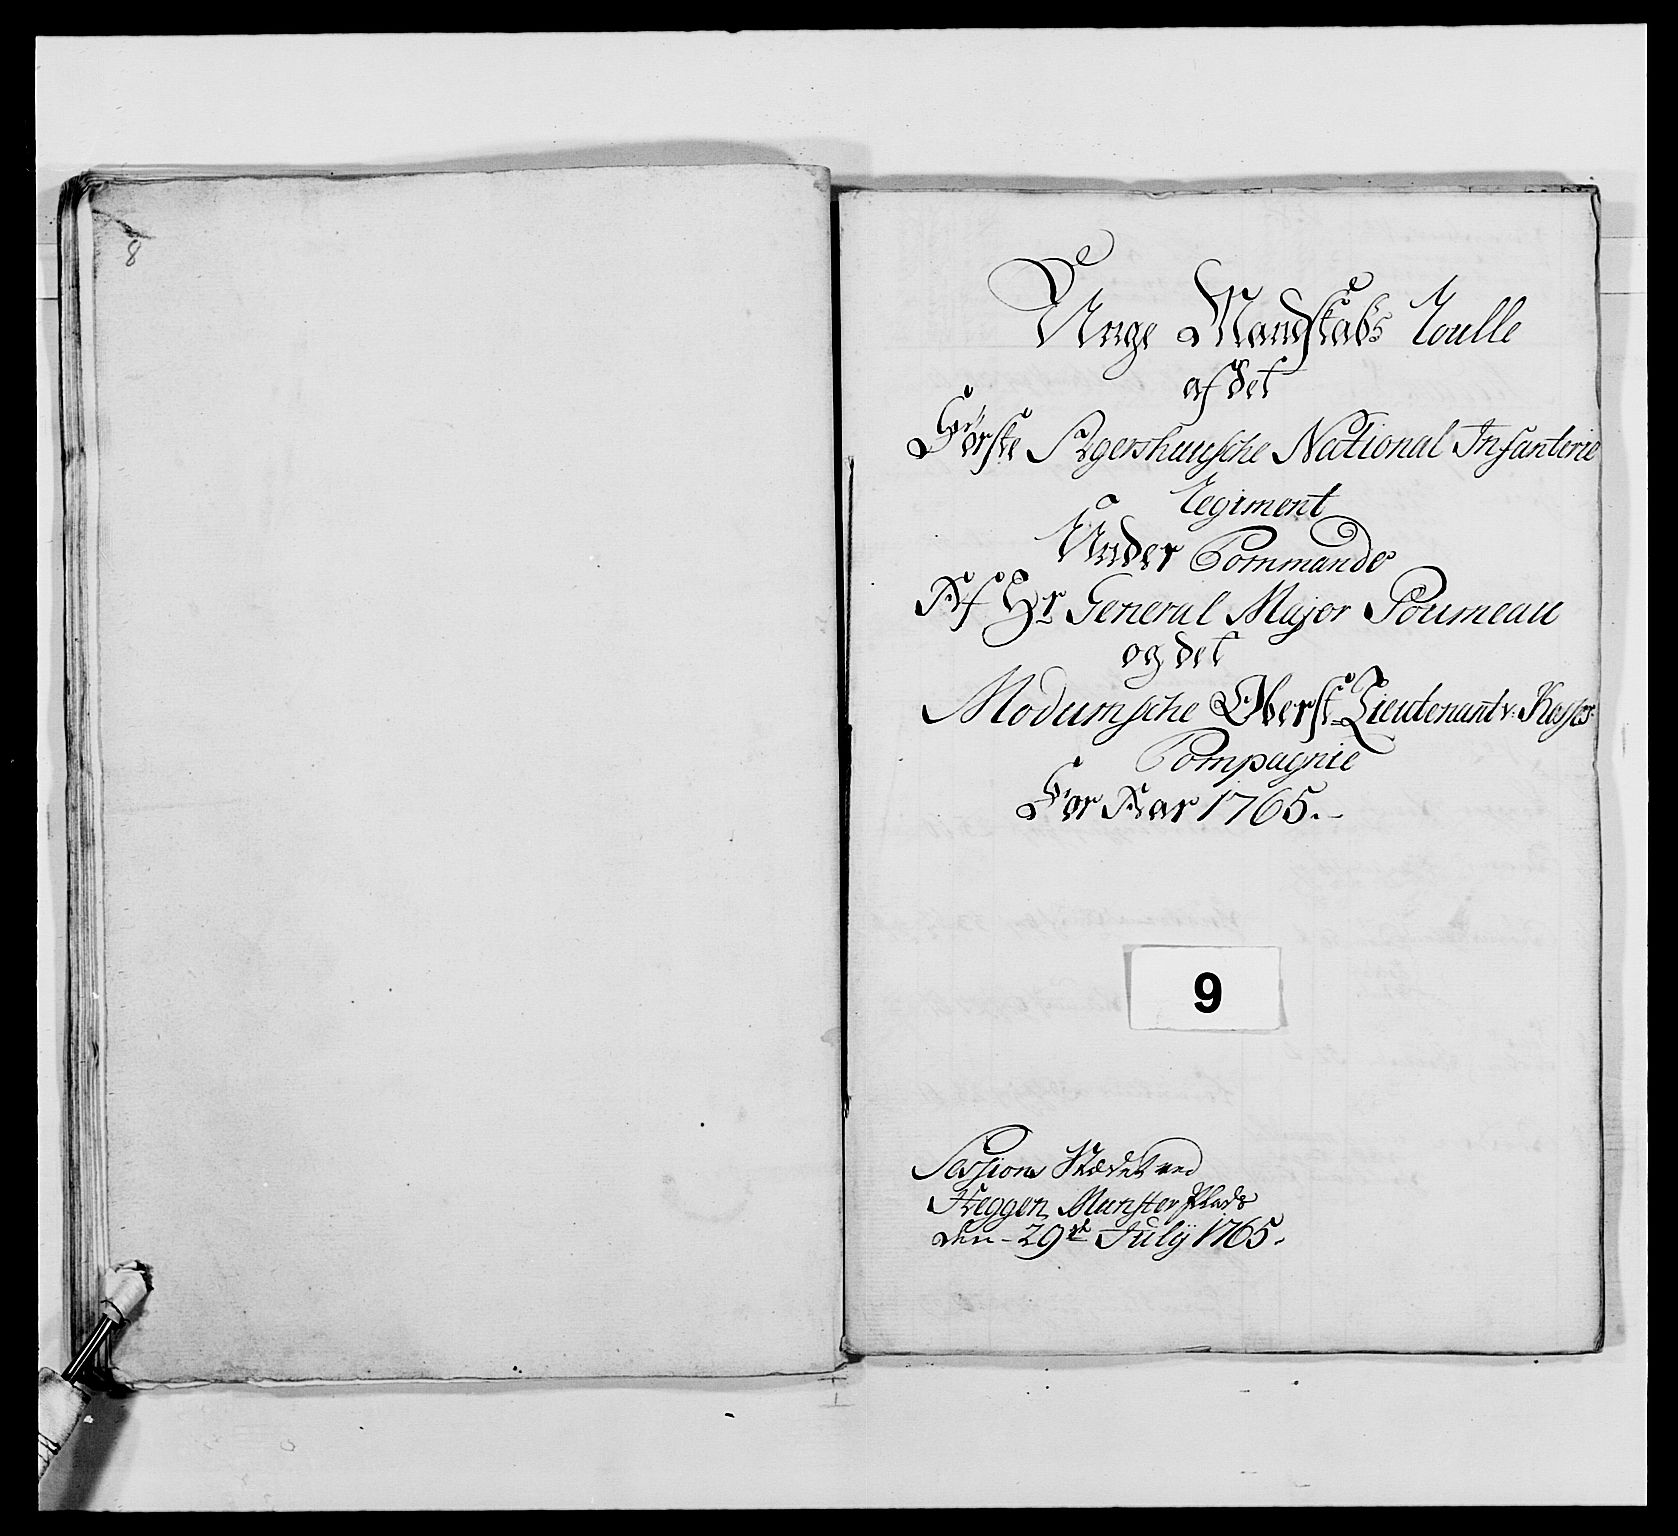 8
Unge Mandskabs Roulle
af det
Første Agershuusche National Infanterie
Regiment
Under Commando
Af Hr General Major Poumeau
og det
Modumsche Oberst Lieutenant v:
Compagnie
For Aar 1765.-
9
Sessions Stædet ved
Heggen Munster Plads
den - 29de July 1765.